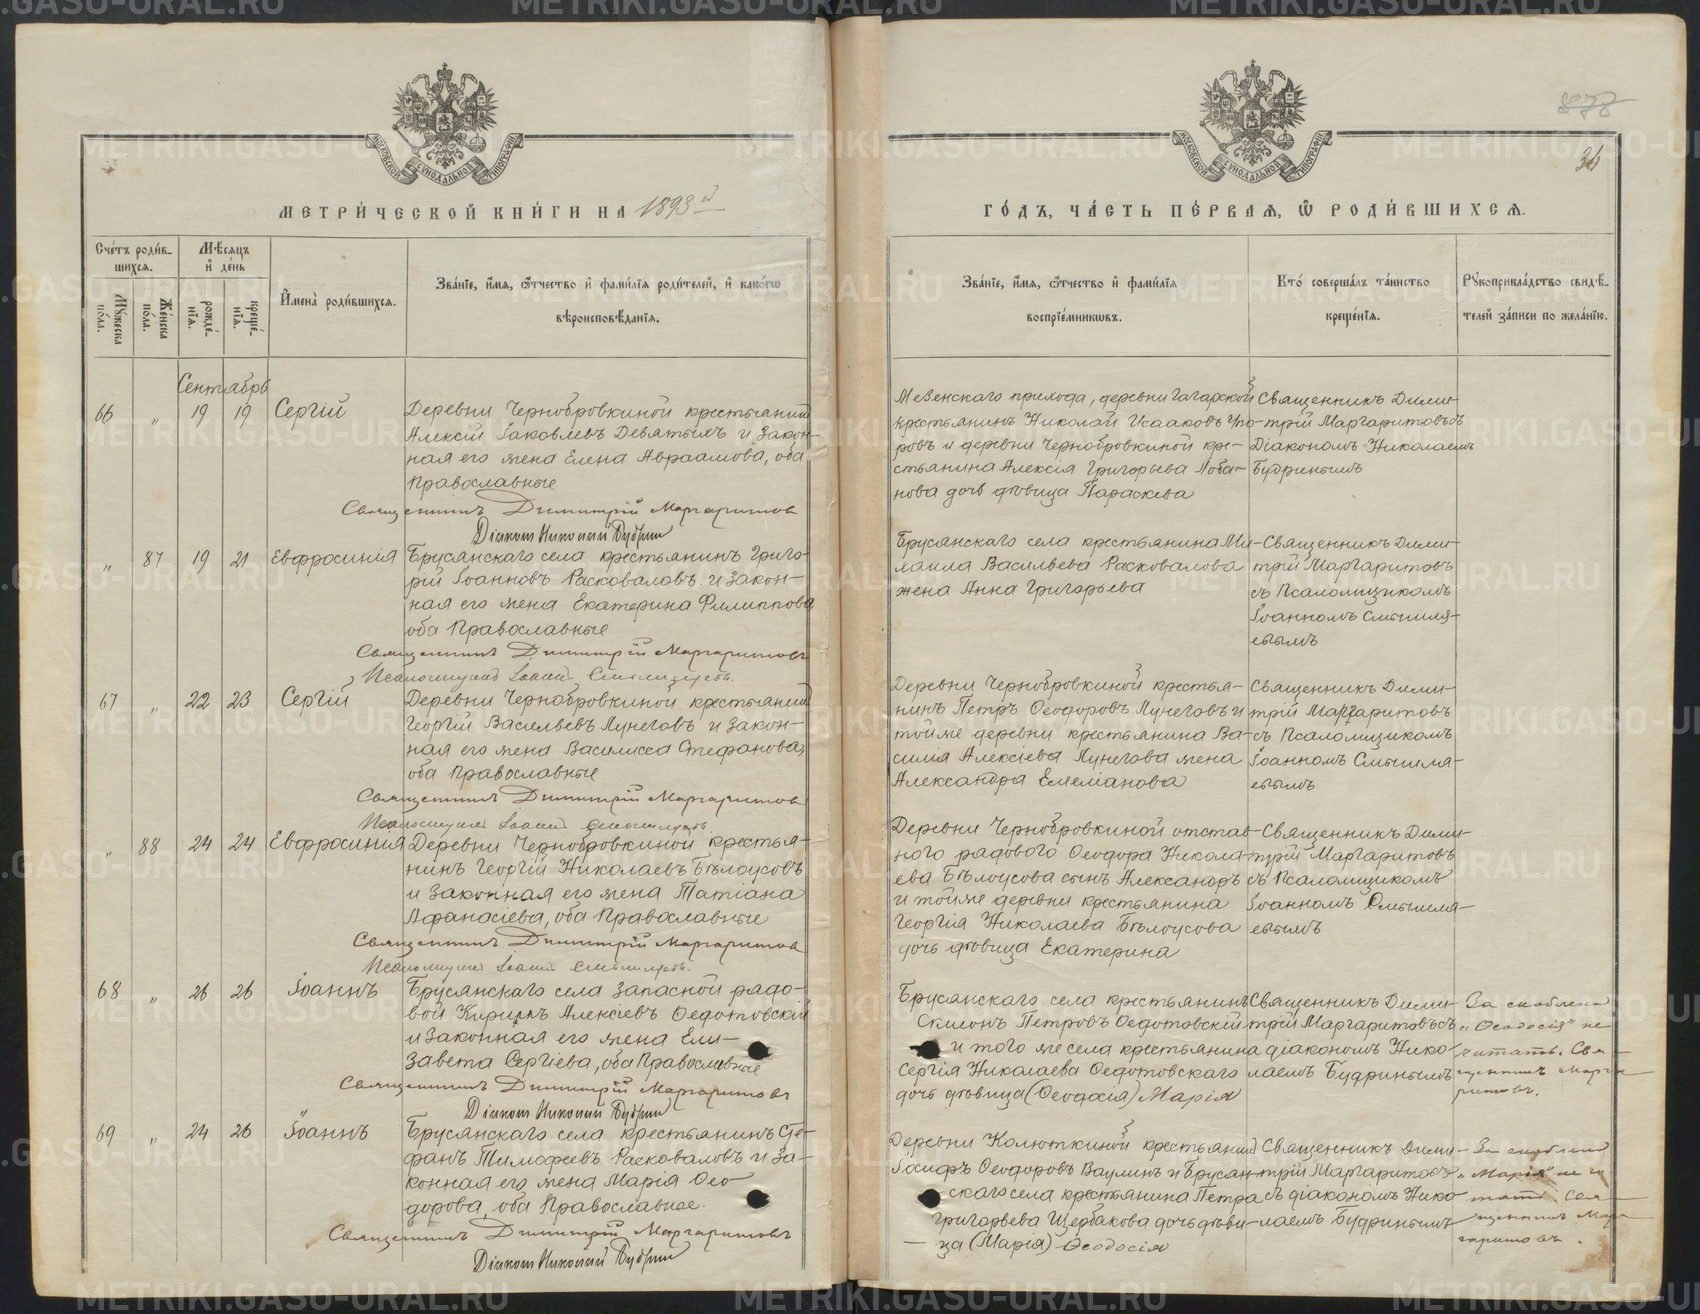 МЕТРИ́ЧЕСКОЙ КНИ́ГИ НА 1893й
Сче́тъ роди́в-
шихся.
Мѣсяцъ
и҆ де́нь
Мꙋ́жеска
по́ла.
Же́нска
по́ла.
рожде́-
нїѧ.
креще́-
нїѧ.
И҆мена̀ роди́вшихсѧ.
Зва́нїе, и҆́мѧ, ѻ҆́тчество и҆ фами́лїѧ роди́телей, и҆ како́гѡ
вѣроисповѣ́данїѧ.
Сентябрь
66 „ 19 19 Сергій
Деревни Чернобровкиной крестьянинъ
Алексій Іаковлевъ Девятыхъ и закон-
ная его жена Елена Авраамова, оба
Православные
Священникъ Димитрій Маргаритовъ
Діаконъ Николай Будринъ
„ 87 19 21 Евфросинія
Брусянскаго села крестьянинъ Григо-
рій Іоанновъ Расковаловъ и закон-
ная его жена Екатерина Филиппова
оба Православные
Священникъ Димитрій Маргаритовъ
Псаломщикъ Іоаннъ
67 „ 22 23 Сергій
Деревни Чернобровкиной крестьянинъ
Георгій Васильевъ Лунеговъ и закон-
ная его жена Василисса Стефанова,
оба Православные
Священникъ Димитрій Маргаритовъ
Псаломщикъ Іоаннъ
„ 88 24 24 Евфросинія
Деревни Чернобровкиной крестья-
нинъ Георгій Николаевъ Бѣлоусовъ
и законная его жена Татіана
Афанасіева, оба Православные
Священникъ Димитрій Маргаритовъ
Псаломщикъ Іоаннъ
68 „ 26 26 Іоаннъ
Брусянскаго села запасной рядо-
вой Кириллъ Алексіевъ Ѳедотовскій
и законная его жена Ели-
завета Сергіева, оба Православные
Священникъ Димитрій Маргаритовъ
Діаконъ Николай Будринъ
69 „ 24 26 Іоаннъ
Брусянскаго села крестьянинъ Сте-
фанъ Тимофеевъ Расковаловъ и за-
конная его жена Марія Ѳео-
дорова, оба Православные.
Священникъ Димитрій Маргаритовъ
Діаконъ Николай Будринъ
878
36
ГО́ДЪ, ЧА́СТЬ ПЕ́РВАѦ, Ѡ҆ РОДИ́ВШИХСѦ.
Зва́нїе, и҆́мѧ, ѻ҆́тчество и҆ фами́лїѧ
воспрїе́мникѡвъ.
Кто̀ соверша́лъ та́инство
креще́нїѧ.
Рꙋкоприкла́дство свидѣ́-
телей за́писи по жела́нїю.
Мезенскаго прихода, деревни Гагарской
крестьянинъ Николай Исааковъ
ровъ и деревни Чернобровкиной кре-
стьянина Алексія Григорьева Лоба-
нова дочь дѣвица Параскева
Священникъ Дими-
трій Маргаритовъ съ
Діакономъ Николаемъ
Будринымъ
Брусянскаго села крестьянина Ми-
хаила Васильева Расковалова
жена Анна Григорьева
Священникъ Дими-
трій Маргаритовъ
съ Псаломщикомъ
Іоанномъ Смышля-
евымъ
Деревни Чернобровкиной крестья-
нинъ Петръ Ѳеодоровъ Лунеговъ и
той же деревни крестьянина Ва-
силія Алексіева Лунегова жена
Александра Емеліанова
Священникъ Дими-
трій Маргаритовъ
съ Псаломщикомъ
Іоанномъ Смышля-
евымъ
Деревни Чернобровкиной отстав-
ного рядового Ѳеодора Никола-
ева Бѣлоусова сынъ Александръ
и той же деревни крестьянина
Георгія Николаева Бѣлоусова
дочь дѣвица Екатерина
Священникъ Дими-
трій Маргаритовъ
съ Псаломщикомъ
Іоанномъ Смышля-
евымъ
Брусянскаго села крестьянинъ
Симонъ Петровъ Ѳедотовскій
и того же села крестьянина
Сергія Николаева Ѳедотовскаго
дочь дѣвица (Ѳеодосія) Марія
Священникъ Дими-
трій Маргаритовъ съ
діакономъ Нико-
лаемъ Будринымъ
За скоблено
„Ѳеодосія" не
читать. Свя-
щенникъ Марга-
ритовъ.
Деревни Колюткиной крестьянинъ
Іосифъ Ѳеодоровъ Ваулинъ и Брусян-
скаго села крестьянина Петра
Григорьева Щербакова дочь дѣви-
ца (Марія) Ѳеодосія
Священникъ Дими-
трій Маргаритовъ
съ діакономъ Нико-
лаемъ Будринымъ
За скоблено
„Марія" не чи-
тать Свя-
щенникъ Мар-
гаритовъ.